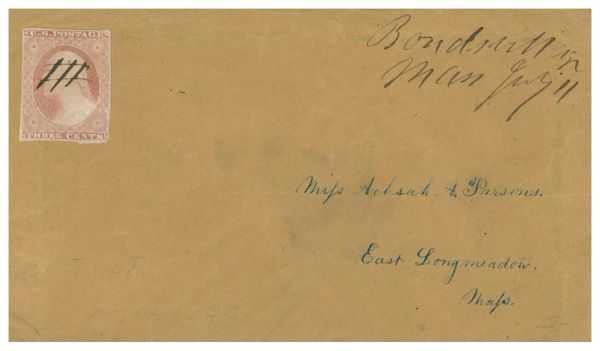 U.S. POSTAGE
THREE CENTS
Bondsvill
Mass July 11
Miſs Achsah A. Parsons.
East Longmeadow.
Maſs.